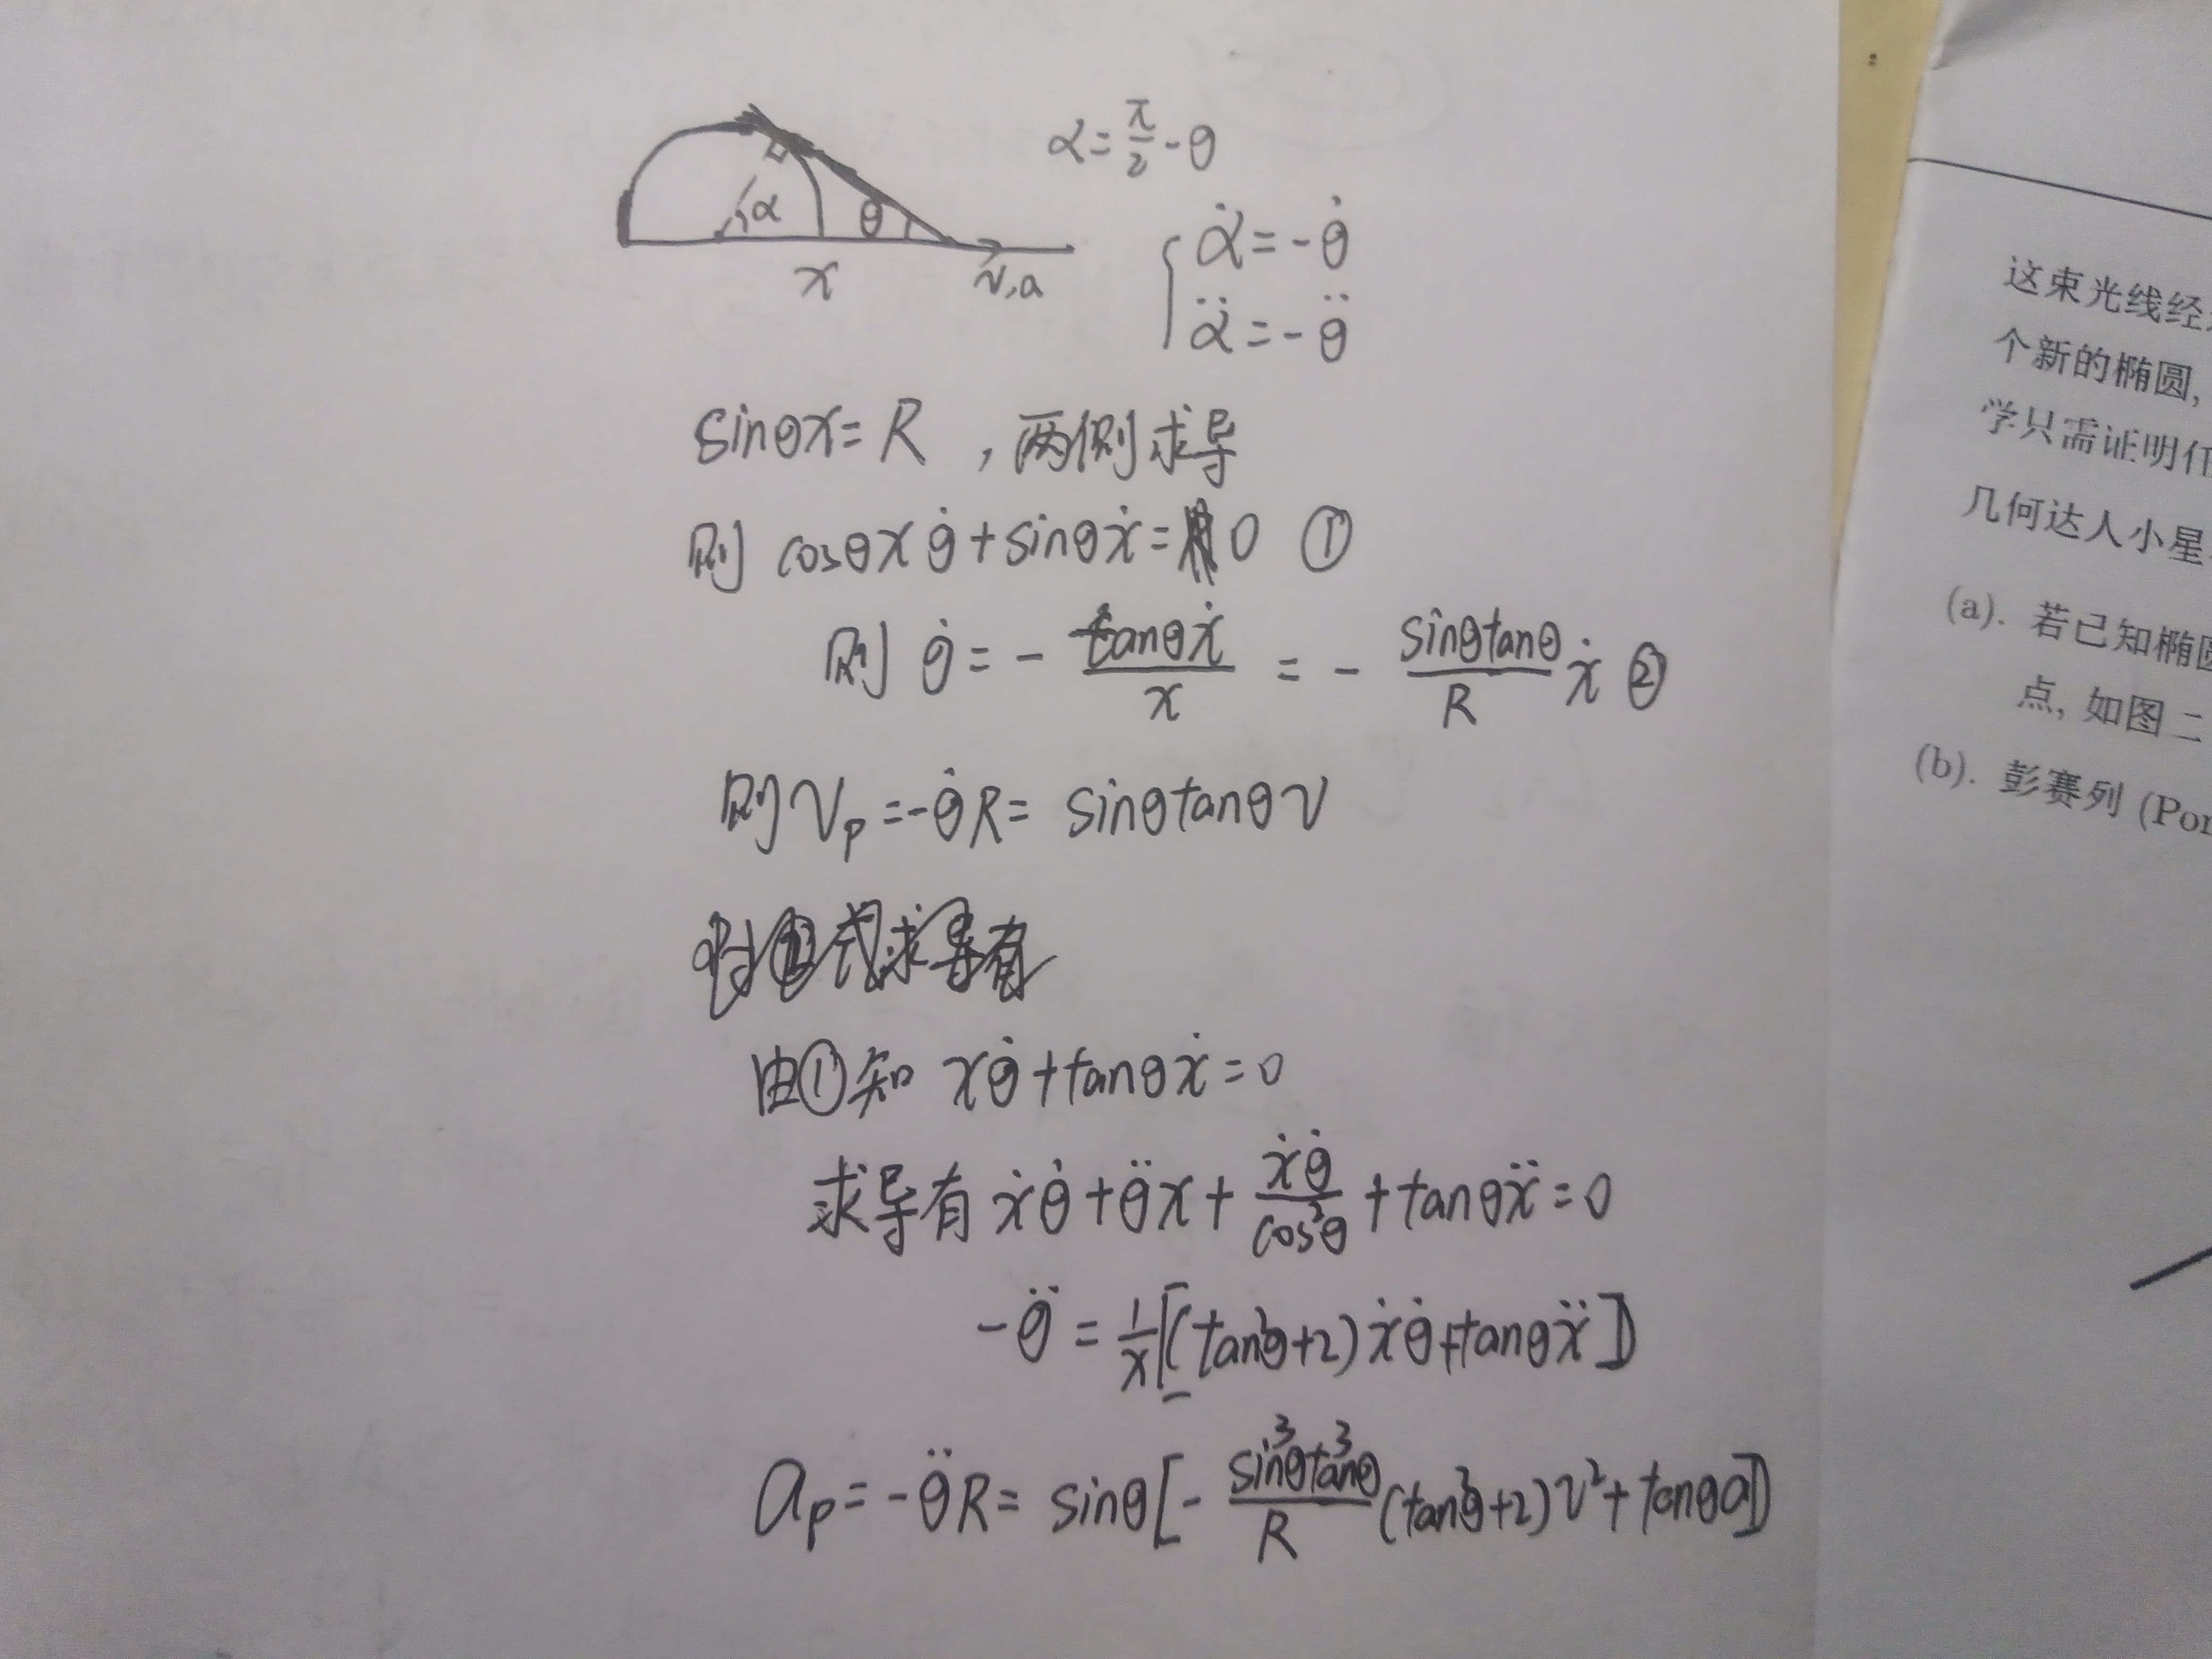 α = π/2 - θ
α
θ
x
v,a
α̇ = -θ̇
α̈ = -θ̈
sinθx = R , 两侧求导
则 cosθxθ̇ + sinθẋ = 0 ①
则 θ̇ = - tanθẋ/x = - sinθtanθ/R ẋ ②
则 v_p = -θ̇R = sinθtanθv
由①知 xθ̇ + tanθẋ = 0
求导有 ẋθ̇ + θ̈x + ẋθ̇/cos²θ + tanθẍ = 0
-θ̈ = 1/x[(tan²θ+2)ẋθ̇ + tanθẍ]
a_p = -θ̈R = sinθ[- sin³θtan³θ/R (tan²θ+2)v² + tanθa]
这束光线经
个新的椭圆,
学只需证明任
几何达人小星
(a). 若已知椭圆
点, 如图二
(b). 彭赛列 (Pon